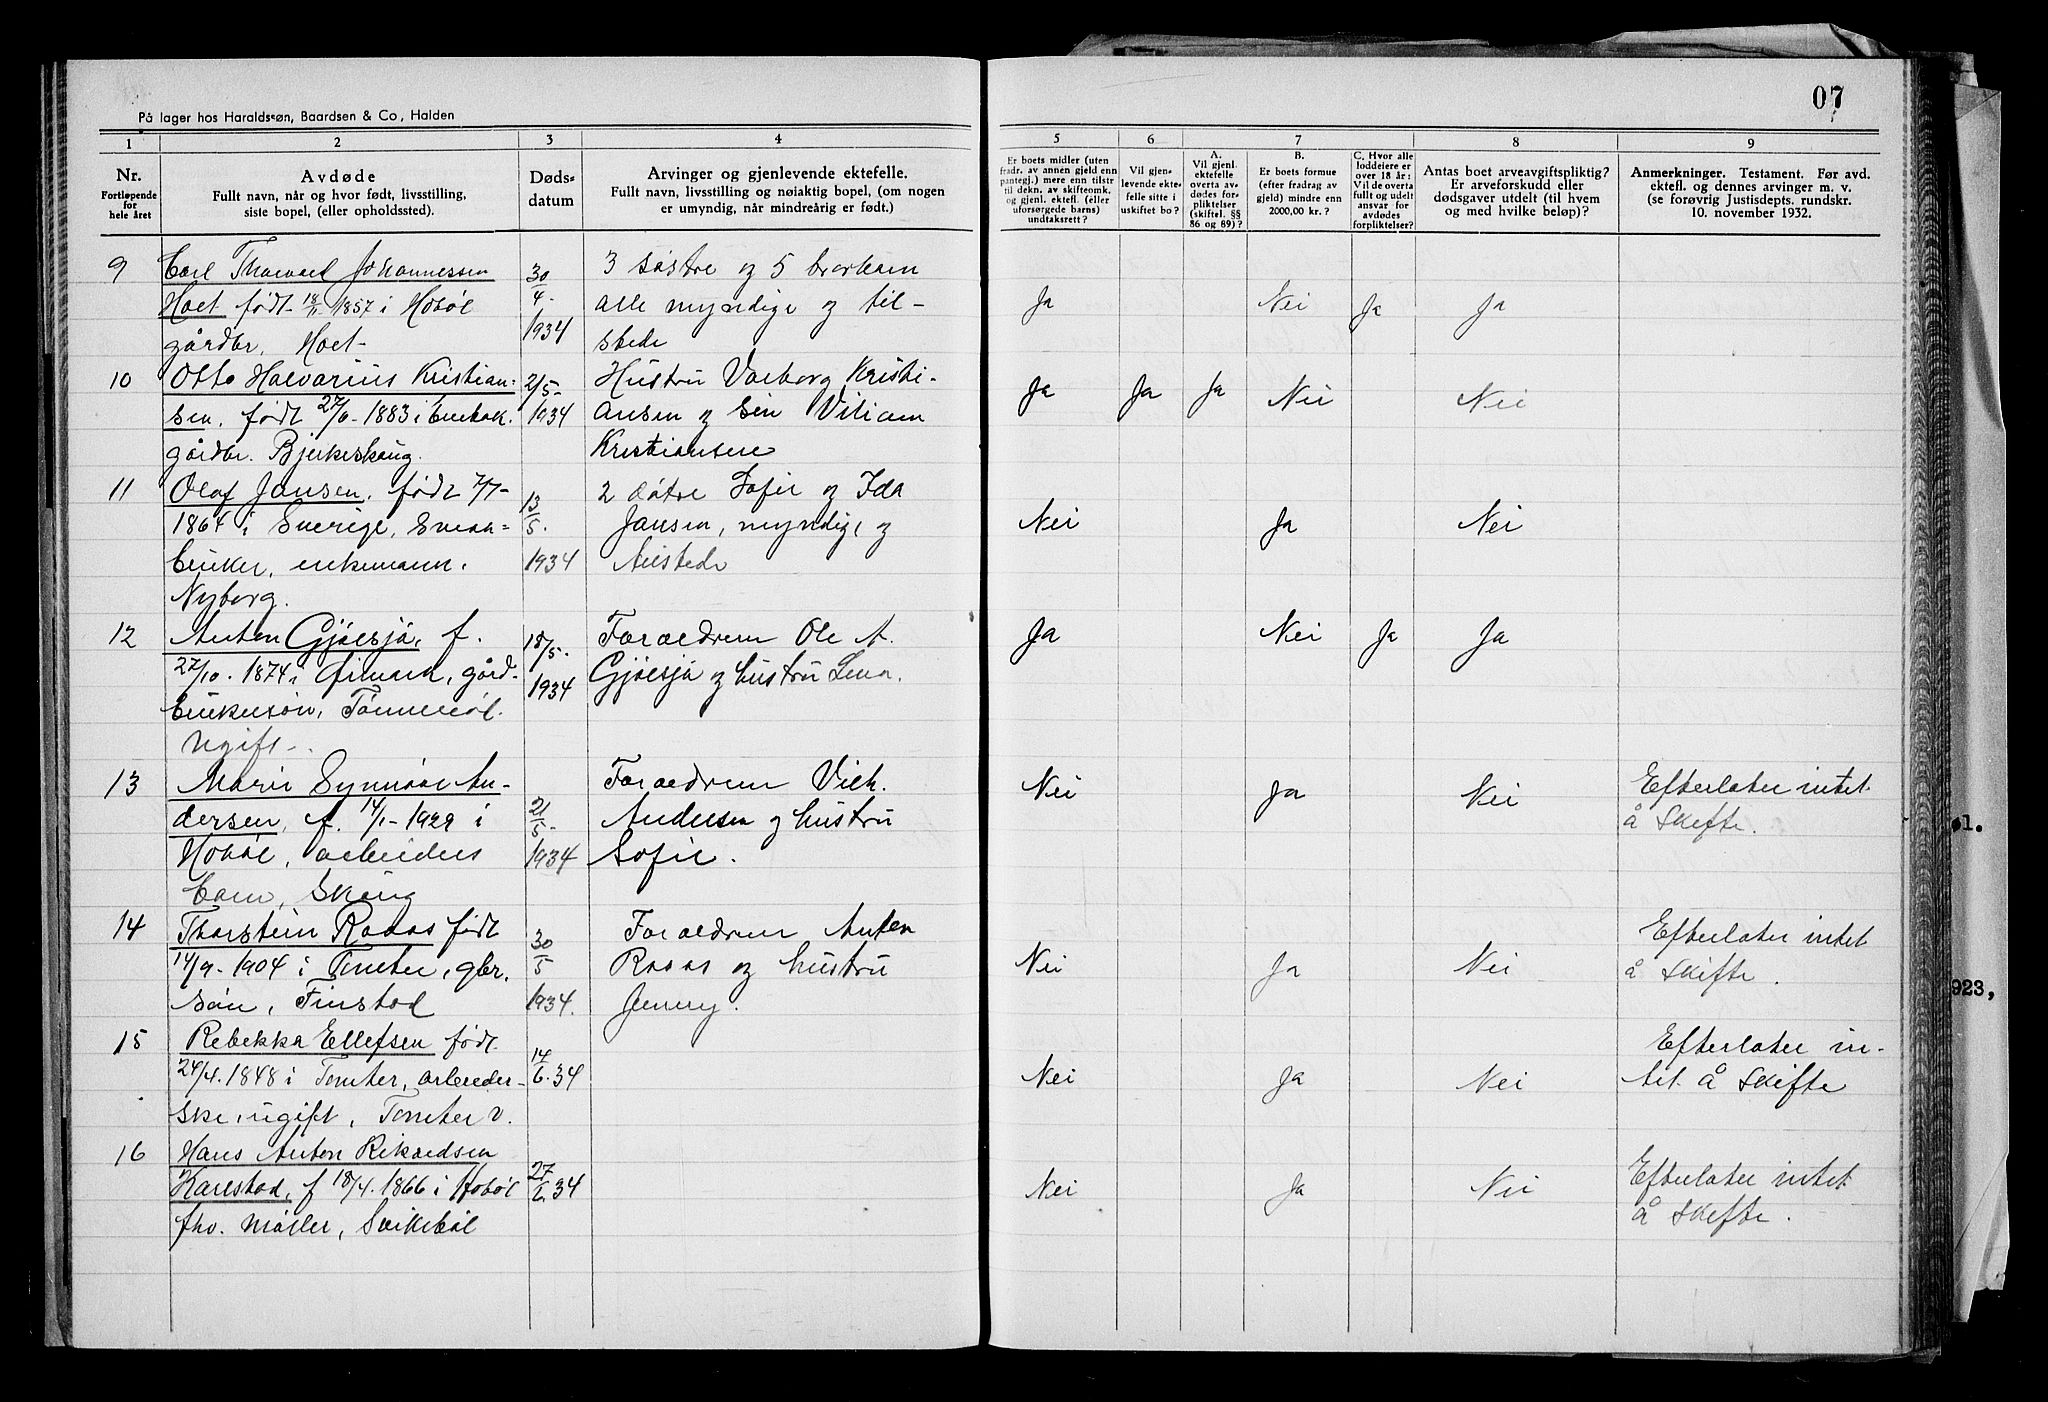 07
På lager hos Haraldssøn, Baardsen & Co, Halden
1 2 3 4 5 6 7 8 9
Nr.
Fortløpende
for
hele året
Avdøde
Fullt navn, når og hvor født, livsstilling,
siste bopel, (eller opholdssted).
Døds-
datum
Arvinger og gjenlevende ektefelle.
Fullt navn, livsstilling og nøiaktig bopel, (om nogen
er umyndig, når mindreårig er født.)
Er boets midler (uten
fradr. av annen gjeld enn
pantegj.) mere enn tilstr
til dekn. av skifteomk.
og gjenl. ektefl. (eller
uforsørgede barns)
undtaksrett?
Vil gjen-
levende ekte-
felle sitte i
uskiftet bo?
A.
Vil gjenl.
ektefelle
overta av-
dødes for-
pliktelser
(skiftel. §§
86 og 89)?
B.
Er boets formue
(efter fradrag av
gjeld) mindre enn
2000,00 kr.?
C. Hvor alle
loddeiere er
over 18 år:
Vil de overta
fullt og udelt
ansvar for
avdødes
forpliktelser?
Antas boet arveavgiftspliktig?
Er arveforskudd eller
dødsgaver utdelt (til hvem
og med hvilke beløp)?
Anmerkninger. Testament. Før avd.
ektefl. og dennes arvinger m. v.
(se forøvrig Justisdepts. rundskr.
10. november 1932.
9 Carl Thorvald Johannessen 30/4. 3 søstre og 5 brorbarn
Hoel født 18/11 1857 i Hobøl 1934 alle myndige og til- Ja Nei Ja Ja
gårdbr. Hoel stede
10 Otto Halvarius Kristian- 2/5- Hustru Valborg Kristi- Ja Ja Ja Nei Nei
sen, født 27/ - 1883 i Enebak. 1934 ansen og sön Viliam
gårdbr. Bjerkeskaug. Kristiansen
11 Olaf Jansen, født 7/1- 13/5. 2 døtre Sofie og Ida
1864 i Sverige, småa- Jansen, myndige og Nei Ja Nei
bruker, enkemann. 1934 tilstede
Nyborg.
12 Anton Gjølsjø, f. 18/5- Foraeldrene Ole A. Ja Nei Ja Ja
27/10. 1874 i Øimark, gård- 1934 Gjølsjø og hustru Lena.
brukersøn, Tømmeröl.
Ugift.
13 Marie Synnøve An- Foraeldrene Vilh. Nei Ja Nei Efterlater intet
dersen, f. 14/1- 1929 i 21/5- Andersen og hustru å skifte.
Hobøl, arbeiders 1934 Sofie.
barn, Skaug
14 Thorstein Raaas født 30/5 Foraeldrene Anton Efterlater intet
14/9- 1904 i Tomter, gbr. Raaas og hustru Nei Ja Nei å skifte.
søn, Finstad 1934. Jenny.
15 Rebekka Ellefsen født Efterlater in-
24/4. 1848 i Tomter, arbeider- 14/6. 34 Nei Ja Nei tet å skifte
ske, ugift, Tomter v.
16 Hans Anton Rikardsen Efterlater intet
Karlstad, f 18/4. 1866 i Hobøl 27/6. 34 Nei Ja Nei å skifte.
fhv. møller, Seikebøl
øl.
923,